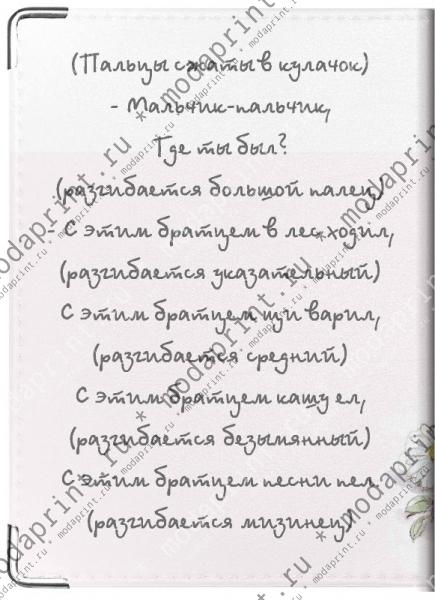 (Пальцы сжаты в кулачок)
- Мальчик-пальчик,
Где ты был?
(разгибается большой палец)
- С этим братцем в лес ходил,
(разгибается указательный)
С этим братцем щи варил,
(разгибается средний)
С этим братцем кашу ел,
(разгибается безымянный)
С этим братцем песни пел.
(разгибается мизинец)
modaprint.ru * modaprint.ru * modaprint.ru